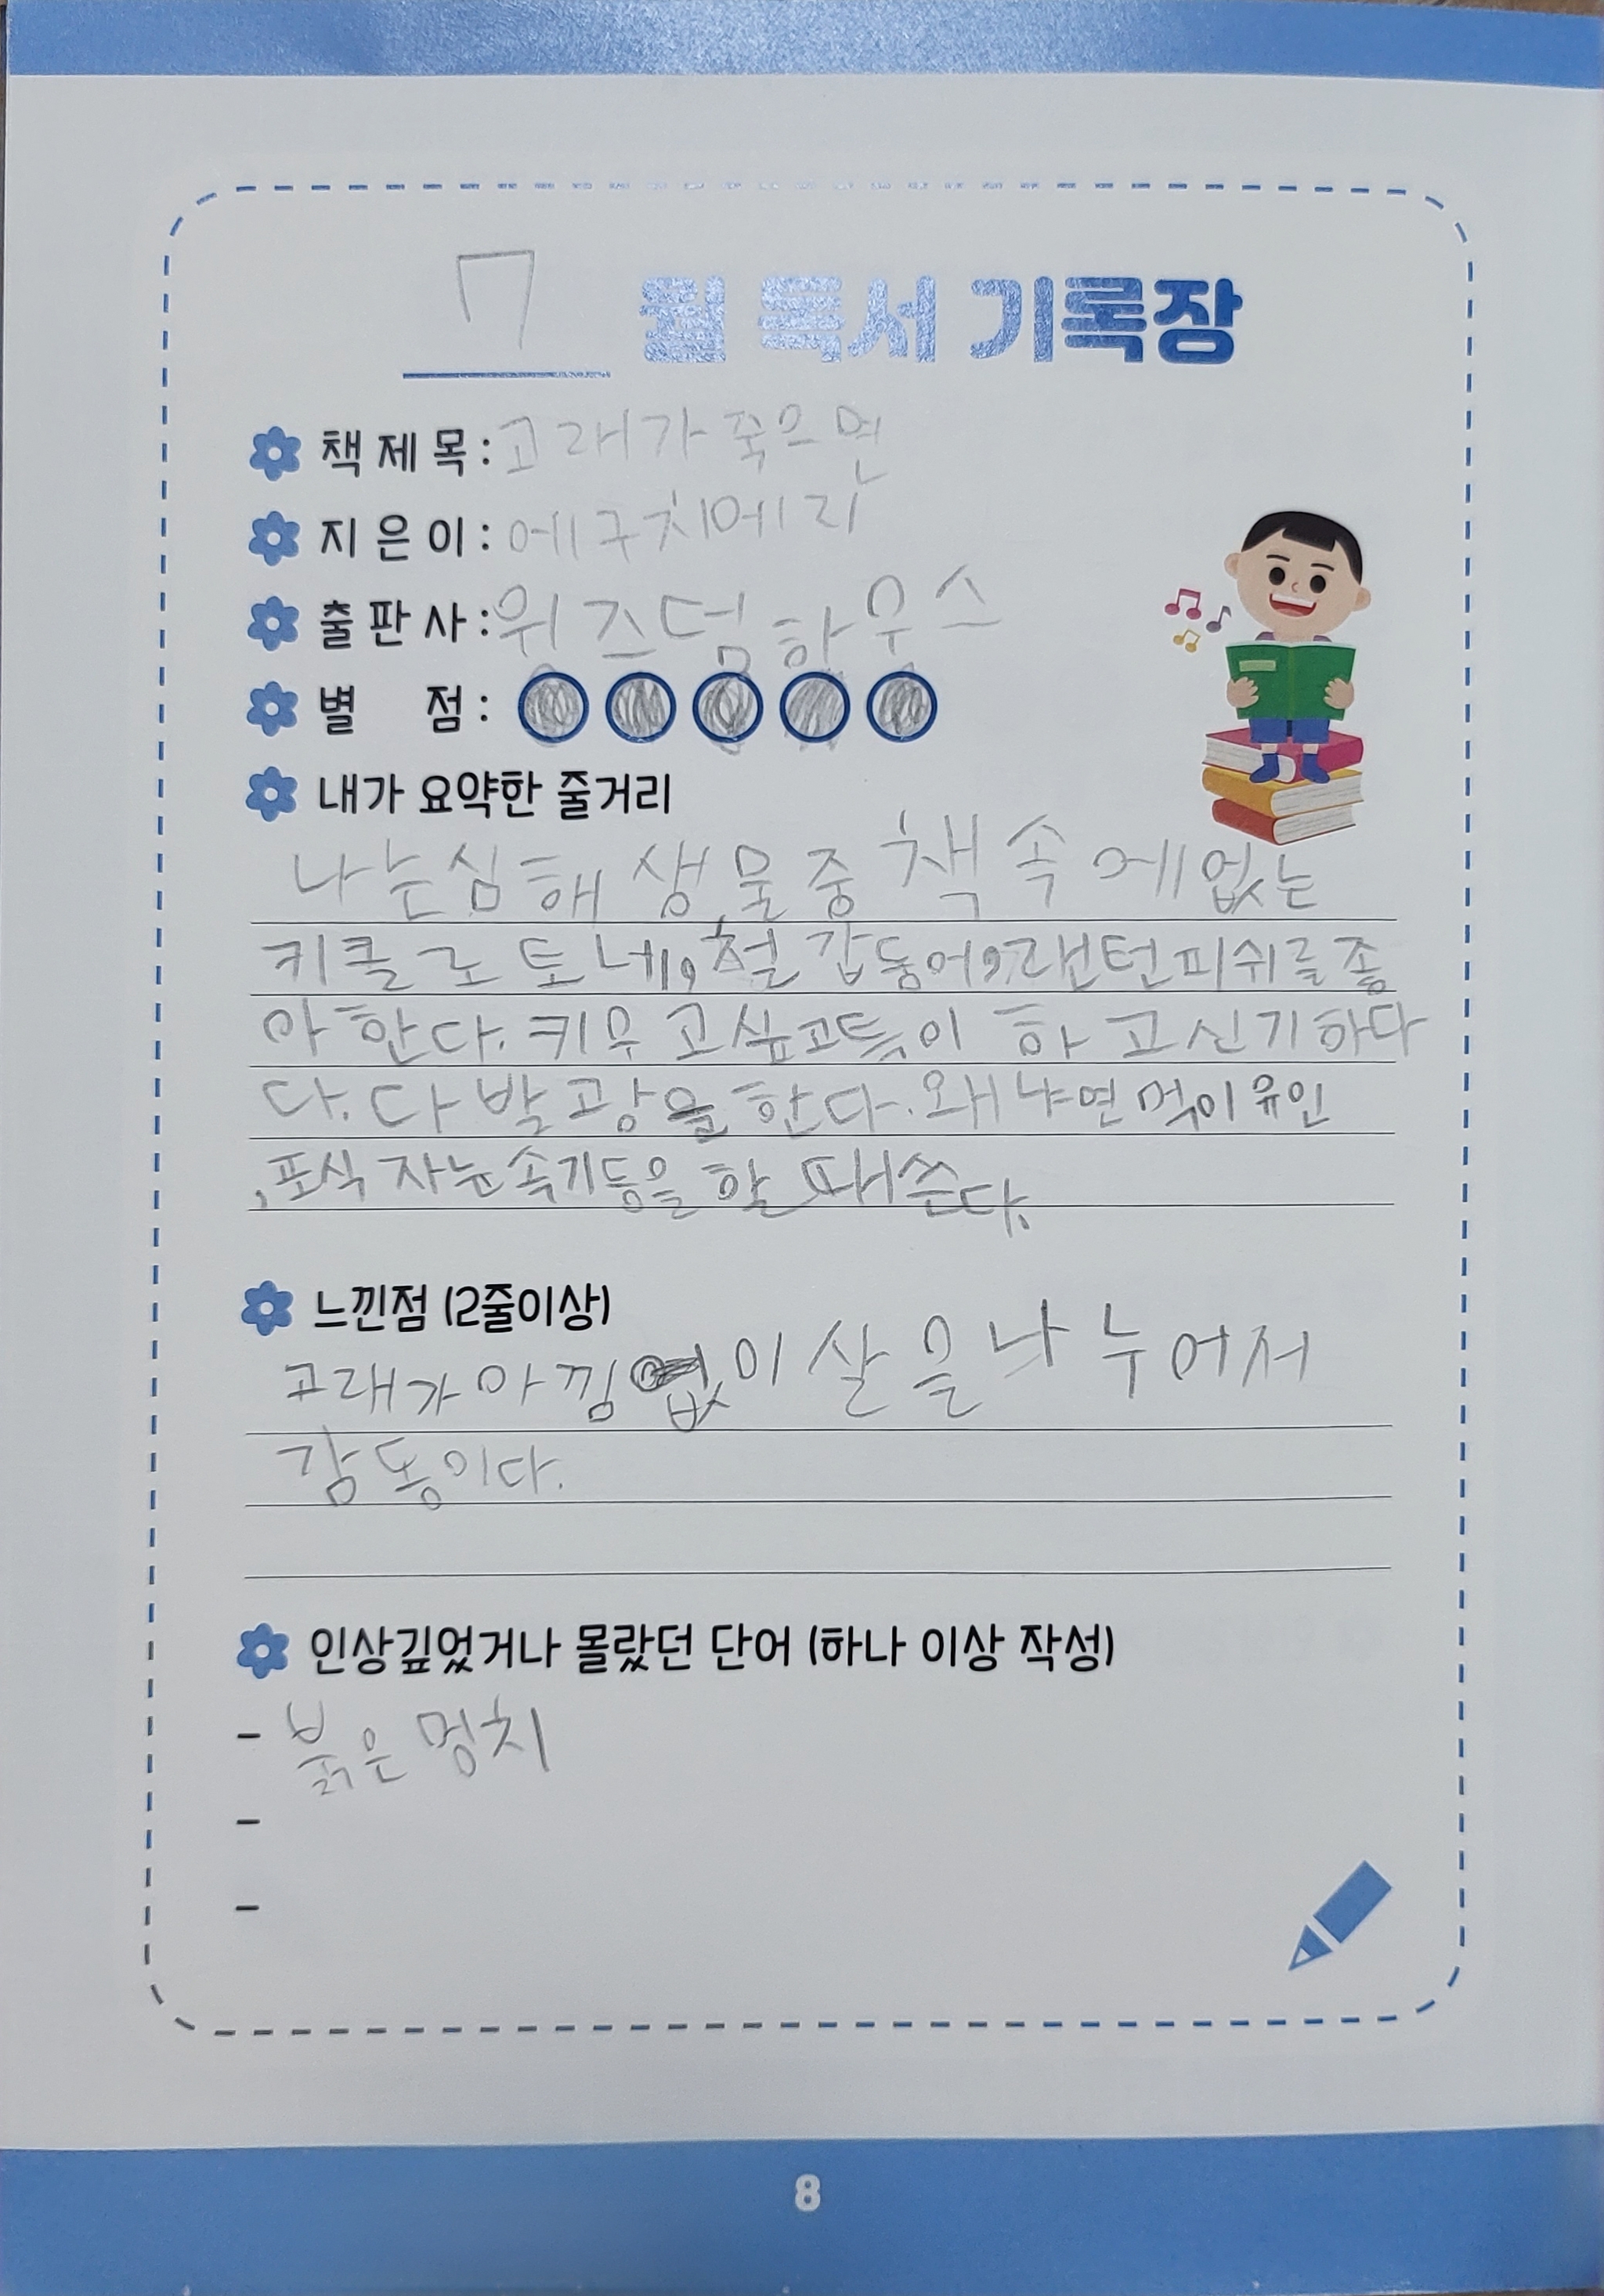 7 월 독서 기록장
책 제 목 : 고래가 죽으면
지 은 이 : 에구치에리
출 판 사 : 위즈덤하우스
별 점 :
내가 요약한 줄거리
나는 심해 생물 중 책 속에 없는
키클로토네, 철갑둥어, 랜턴피쉬를 좋
아한다. 키우고 싶고 특이하고 신기하다
다. 다 발광을 한다. 왜냐면 먹이 유인
, 포식자 눈속기등을 할 때 쓴다.
느낀점 (2줄이상)
고래가 아낌 없이 살을 나누어저
감동이다.
인상깊었거나 몰랐던 단어 (하나 이상 작성)
- 붉은 멍치
-
-
8